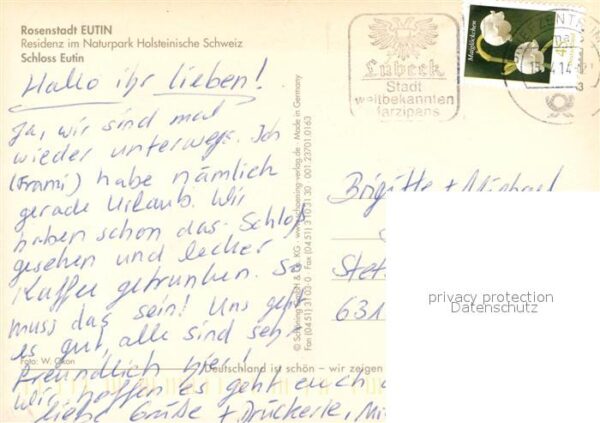 Rosenstadt EUTIN
Residenz im Naturpark Holsteinische Schweiz
Schloss Eutin
Hallo ihr lieben!
Ja, wir sind mal
wieder unterwegs. Ich
habe nämlich
gerade Urlaub. Wir
haben schon das Schloß
gesehen und lecker
Kaffee getrunken. So
muss das sein! Uns geht
es gut, alle sind sehr
freundlich hier!
Wir hoffen es geht euch
liebe Grüße + Drückerle,
Foto: W. Okon
Deutschland ist schön – wir zeigen
© Schöning GmbH & Co. KG · www.schoening-verlag.de · Made in Germany
Fax (0451) 31 03 30 001 23701.0163
Lübeck
Stadt
weltbekannten
Marzipans
Maiglöckchen
Brigitte + Michael
631
privacy protection
Datenschutz